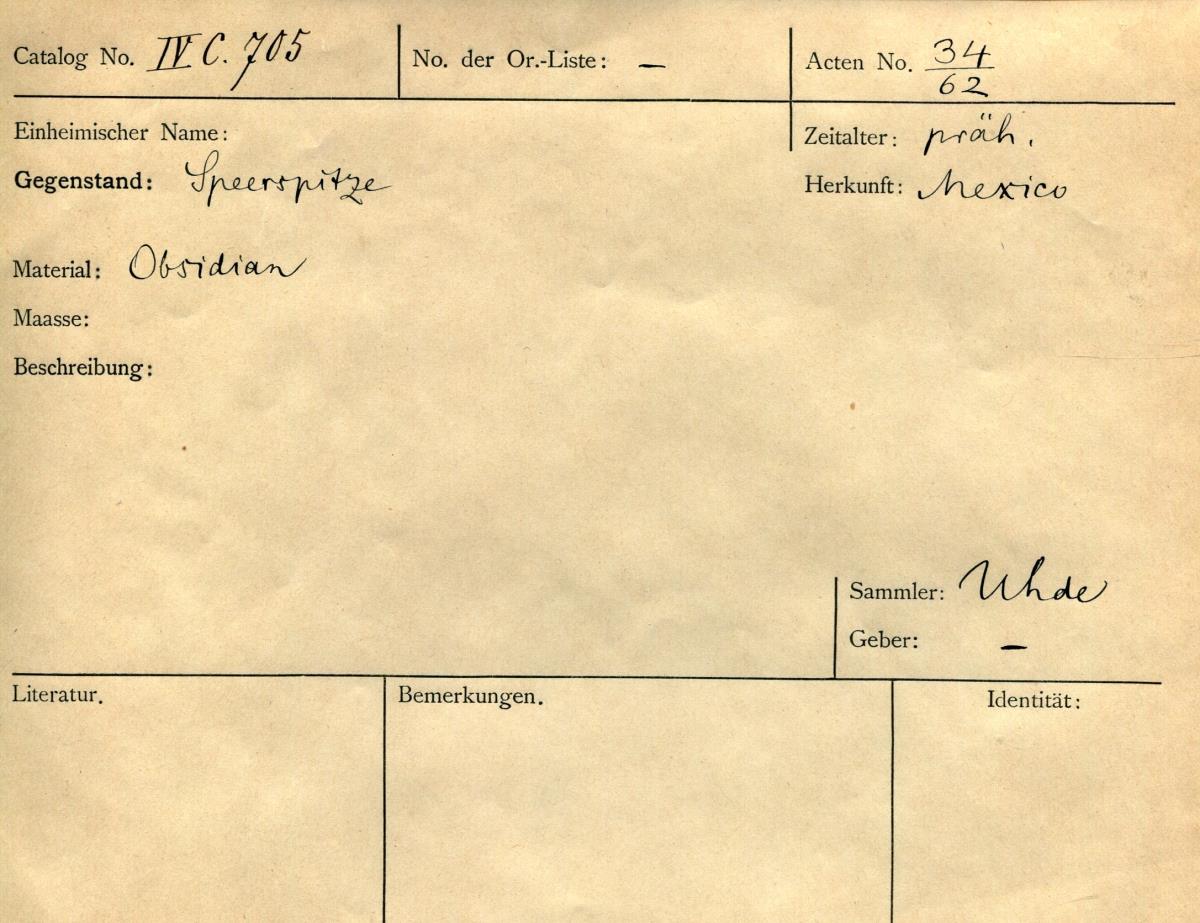 Catalog No. IV C. 705
No. der Or.-Liste: –
Acten No. 34/62
Einheimischer Name:
Zeitalter: präh.
Gegenstand: Speerspitze
Herkunft: Mexico
Material: Obsidian
Maasse:
Beschreibung:
Sammler: Uhde
Geber: –
Literatur.
Bemerkungen.
Identität: